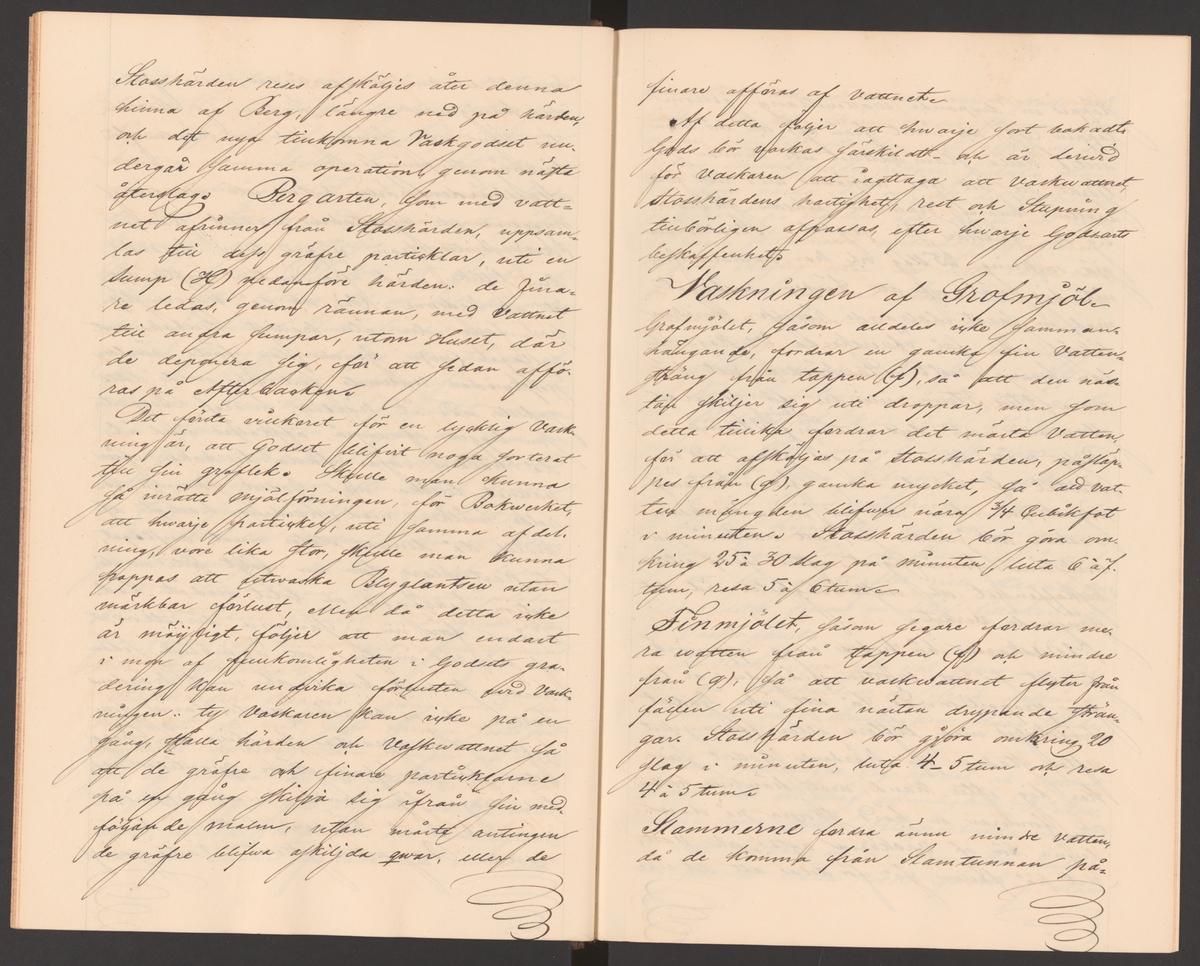 Stosshärden reses afsköljes åter denna
hinna af Berg, längre ned på härden,
och det nya tillkomna Vaskgodset un-
dergår samma operation, genom näfta
återslag. Bergarten, som med vatt-
net afrinner från Stosshärden, uppsam-
las till dess gräfre partiklar, uti en
Sump (H) nedanföre härden: de fina-
re ledas, genom rännan, med Vattnet
till andra Sumpar, utom Huset, där
de deponera sig, för att sedan affö-
ras på Afterbacken.
Det första vilkoret för en lycklig Vask-
ning är, att Godset blifvit noga sorterat
till sin groflek. Skulle man kunna
så inrätta mjölförningen, för Bokwerket,
att hwarje partickel, uti samma afdel-
ning, vore lika stor, skulle man kunna
hoppas att utwaska Blyglantsen utan
märkbar förlust, Men då detta icke
är möjligt, följer att man endast
i mon af fullkomligheten i Godsets gra-
dering kan undvika förlusten vid Vask-
ningen.. ty Vaskaren kan icke på en
gång, ställa härden och Vaskwattnet så
att de gräfre och finare partiklarne
på en gång skilja sig ifrån sin med-
följande malm, utan måste antingen
de gräfre blifwa oskiljda qwar, eller de
finare afföras af vattnet.
Af detta följer att hwarje sort bokadt
Gods bör vaskas särskildt och är derwid
för Vaskaren att iagttaga att vaskwattnet,
Stosshärdens hastighet, rest och Stupning
tillbörligen afpassas, efter hwarje Godsarts
beskaffenhet.
Vaskningen af Grofmjöl.
Grofmjölet, såsom alldeles icke samman-
hängande, fordrar en ganska fin Vatten-
sträng från tappen (f), så att den näs-
tan skiljer sig uti droppar, men som
detta tillika fordrar det mästa Vatten,
för att afsköljas på Stosshärden, påsläp-
pes från (g) ganska mycket, så att vat-
ten mängden blifwer nära 3/4 Cubikfot
i minuten. Stosshärden bör göra om-
kring 25 à 30 slag på minuten luta 6 à 7.
tum, resa 5 à 6 tum.
Finmjölet, såsom segare fordrar me-
ra watten från tappen (f) och mindre
från (g), så att vaskwattnet flyter från
fällen uti fina nästan drypande strän-
gar. Stosshärden bör gjöra omkring 20
slag i minuten, luta 4-5 tum och resa
4 à 5 tum.
Slammerne fordra ännu mindre vatten,
då de komma från Slamtunnan på-